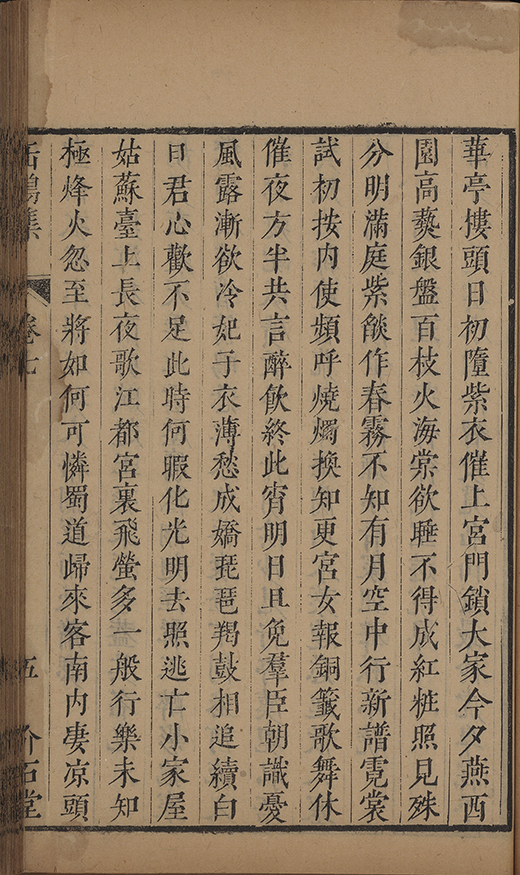 華亭樓頭日初墮紫衣催上宮門鎖大家今夕燕西
園高爇銀盤百枝火海棠欲睡不得成紅粧照見殊
分明滿庭紫燄作春霧不知有月空中行新譜霓裳
試初按内使頻呼燒燭換知更宮女報銅籤歌舞休
催夜方半共言醉飲終此宵明日且免羣臣朝識憂
風露漸欲冷妃子衣薄愁成嬌琵琶羯鼓相追續白
日君心歡不足此時何暇化光明去照逃亡小家屋
姑蘇臺上長夜歌江都宮裏飛螢多一般行樂未知
極烽火忽至將如何可憐蜀道歸來客南内凄凉頭
缶鳴集 卷七 五 介石堂